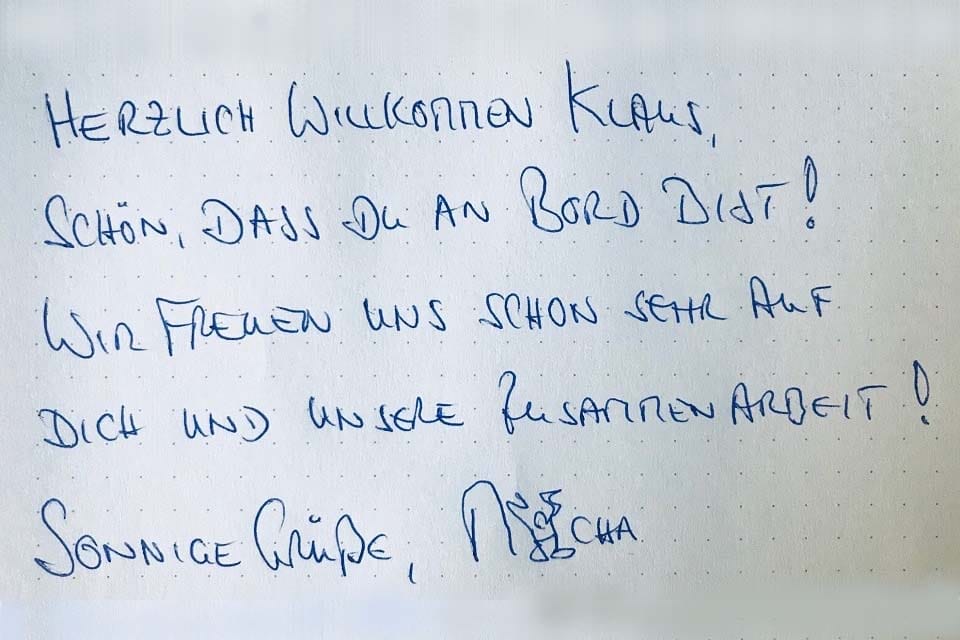 HERZLICH WILLKOMMEN KLAUS,
SCHÖN, DASS DU AN BORD BIST!
WIR FREUEN UNS SCHON SEHR AUF
DICH UND UNSERE ZUSAMMENARBEIT!
SONNIGE GRÜßE, MISCHA